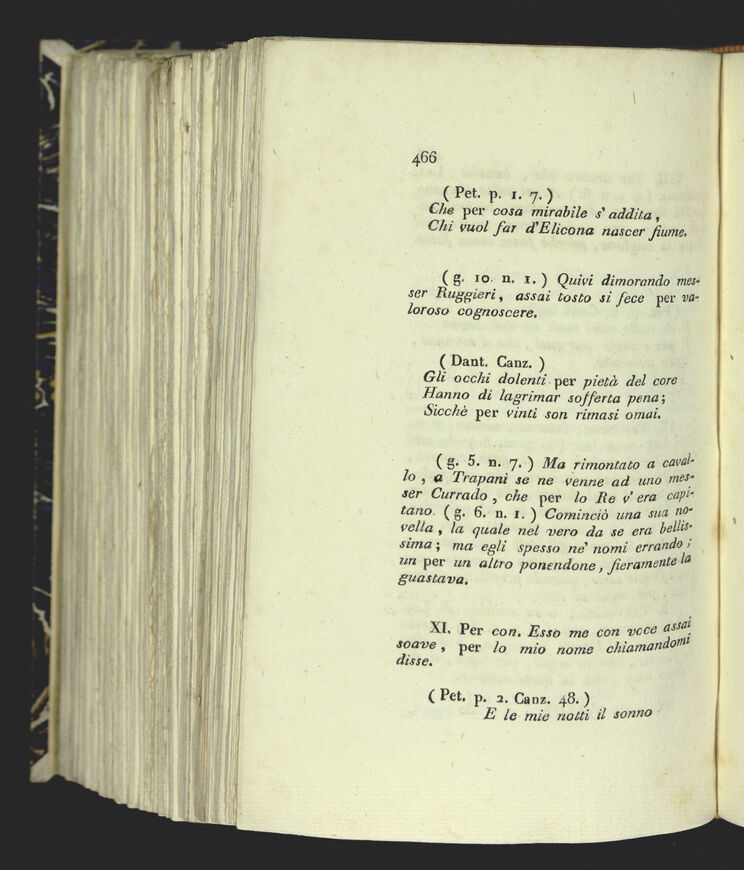 466
( Pet. p. 1. 7. )
Che per cosa mirabile s' addita ,
Chi vuol far d'Elicona nascer fiume.
( g. 10. n. 1. ) Quivi dimorando mes-
ser Ruggieri , assai tosto si fece per va-
loroso cognoscere.
( Dant. Canz. )
Gli occhi dolenti per pietà del core
Hanno di lagrimar sofferta pena ;
Sicchè per vinti son rimasi omai.
( g. 5. n. 7. ) Ma rimontato a caval-
lo , a Trapani se ne venne ad uno mes-
ser Currado , che per lo Re v' era capi-
tano. ( g. 6. n. 1. ) Cominciò una sua no-
vella , la quale nel vero da se era bellis-
sima ; ma egli spesso ne' nomi errando ;
un per un altro ponendone , fieramente la
guastava.
XI. Per con. Esso me con voce assai
soave , per lo mio nome chiamandomi
disse.
( Pet. p. 2. Canz. 48. )
E le mie notti il sonno